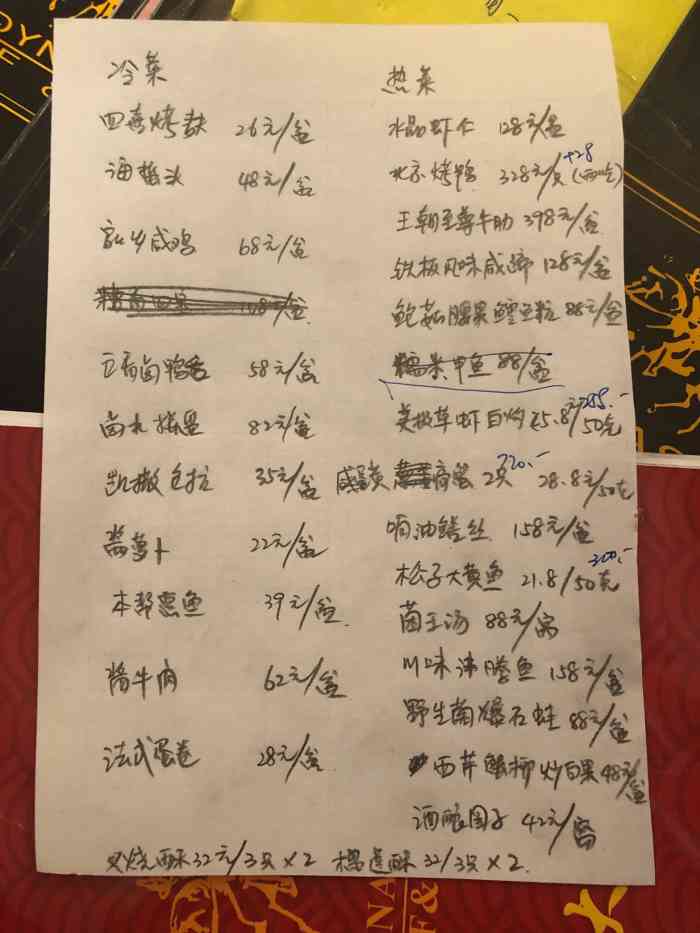 冷菜
四喜烤麸 26元/盆
海蜇头 48元/盆
家乡咸鸡 68元/盆
豆香卤鸭舌 58元/盆
卤水掌翼 82元/盆
凯撒色拉 35元/盆
酱萝卜 22元/盆
本帮熏鱼 39元/盆
酱牛肉 62元/盆
法式蛋卷 28元/盆
热菜
水晶虾仁 128元/盆
北京烤鸭 328元/只 +28 (两吃)
王朝至尊牛肋 398元/盆
铁板风味咸蹄 128元/盆
鲍菇腰果鳕鱼粒 88元/盆
糯米甲鱼 88/盆
美极草虾白灼 25.8元/50克 258.-
咸蛋黄 膏蟹 2只 28.8元/50克 720.-
响油鳝丝 158元/盆
松子大黄鱼 21.8/50克 300.-
菌王汤 88元/窝
川味沸腾鱼 158元/盆
野生菌爆石蛙 88元/盆
西芹 炒白果 48元/盆
酒酿圆子 42元/窝
叉烧酥32元/3只×2 榴莲酥 32/3只×2.
DYN
E
NA
F&